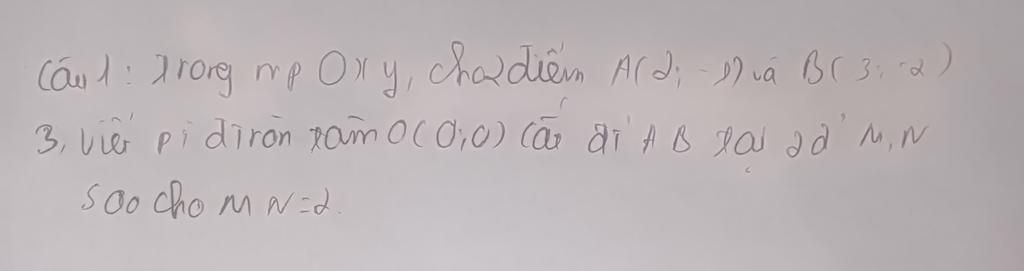 Câu 1: Trong mp Oxy, cho 2 điểm A(2; -1) và B(3; -2)
3, Viết pt đ tròn tâm O(0;0) cắt đt AB tại 2 đ' M, N
sao cho MN=2.